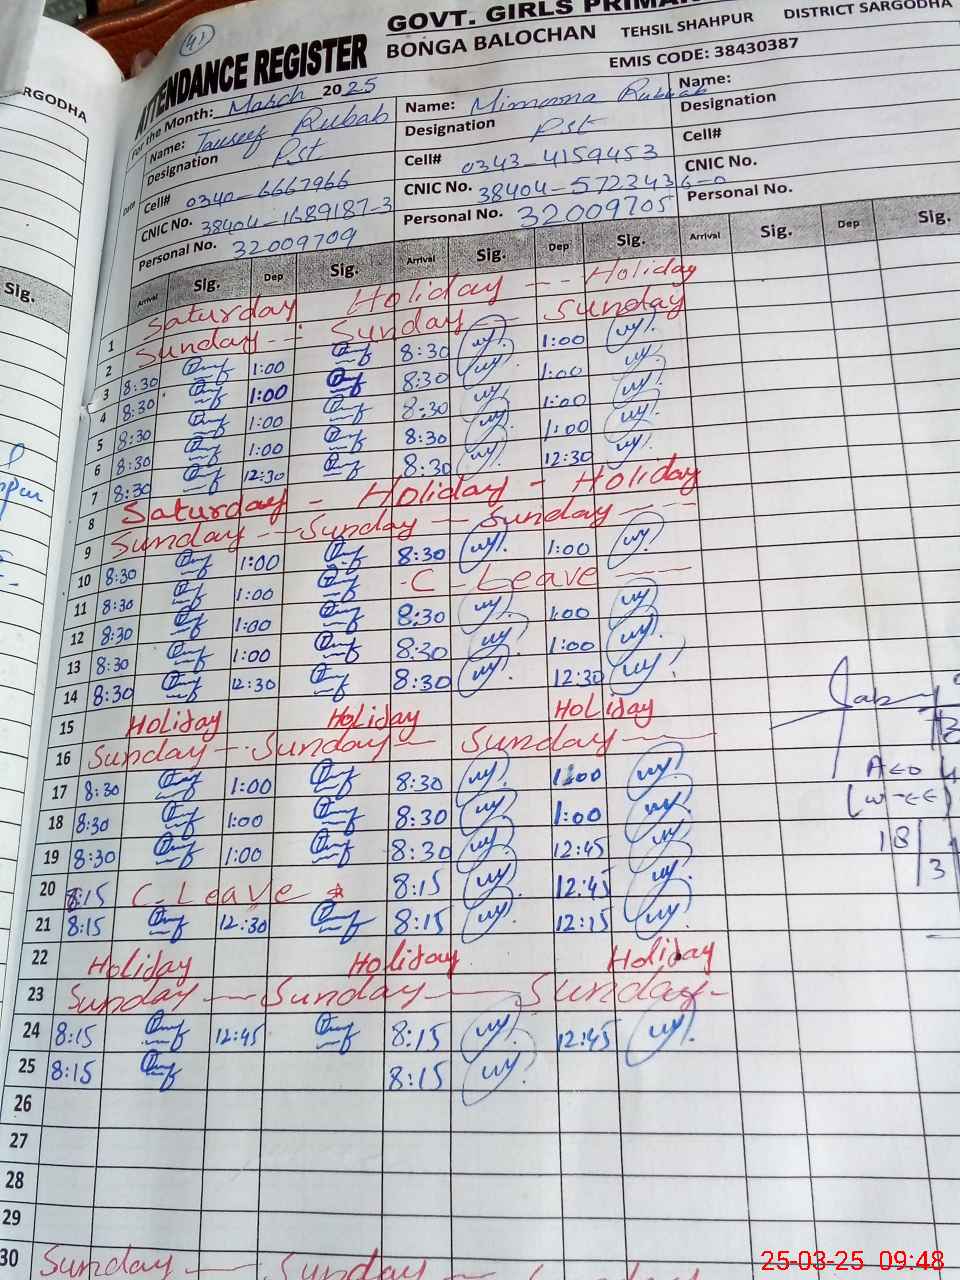 41
GOVT. GIRLS PRIMAR
ATTENDANCE REGISTER BONGA BALOCHAN TEHSIL SHAHPUR DISTRICT SARGODHA
EMIS CODE: 38430387
RGODHA
For the Month: March 2025
Name: Tauseef Rubab Name: Mimoona Name:
Designation Pst Designation Pst Designation
Cell# 0340-6667966 Cell# 0343-4159453 Cell#
CNIC No. 38404-1689187-3 CNIC No. 38404-5723436-0 CNIC No.
Personal No. 32009709 Personal No. 32009705 Personal No.
Sig. Date Arrival Sig. Dep Sig. Arrival Sig. Dep Sig. Arrival Sig. Dep Sig.
1 Saturday Holiday -- Holiday
2 Sunday -- Sunday -- Sunday
3 8:30 1:00 8:30 1:00
4 8:30 1:00 8:30 1:00
5 8:30 1:00 8:30 1:00
6 8:30 1:00 8:30 1:00
7 8:30 12:30 8:30 12:30
8 Saturday - Holiday - Holiday
9 Sunday -- Sunday -- Sunday ---
10 8:30 1:00 8:30 1:00
11 8:30 1:00 C - Leave ---
12 8:30 1:00 8:30 1:00
13 8:30 1:00 8:30 1:00
14 8:30 12:30 8:30 12:30
15 Holiday Holiday Holiday
16 Sunday -- Sunday -- Sunday --
17 8:30 1:00 8:30 1:00
18 8:30 1:00 8:30 1:00
19 8:30 1:00 8:30 12:45
20 8:15 C. Leave 8:15 12:45
21 8:15 12:30 8:15 12:15
22 Holiday Holiday Holiday
23 Sunday -- Sunday -- Sunday -
24 8:15 12:45 8:15 12:45
25 8:15 8:15
26
27
28
29
30 Sunday -- Sunday --
AEO
(W-EE)
18/3
25-03-25 09:48